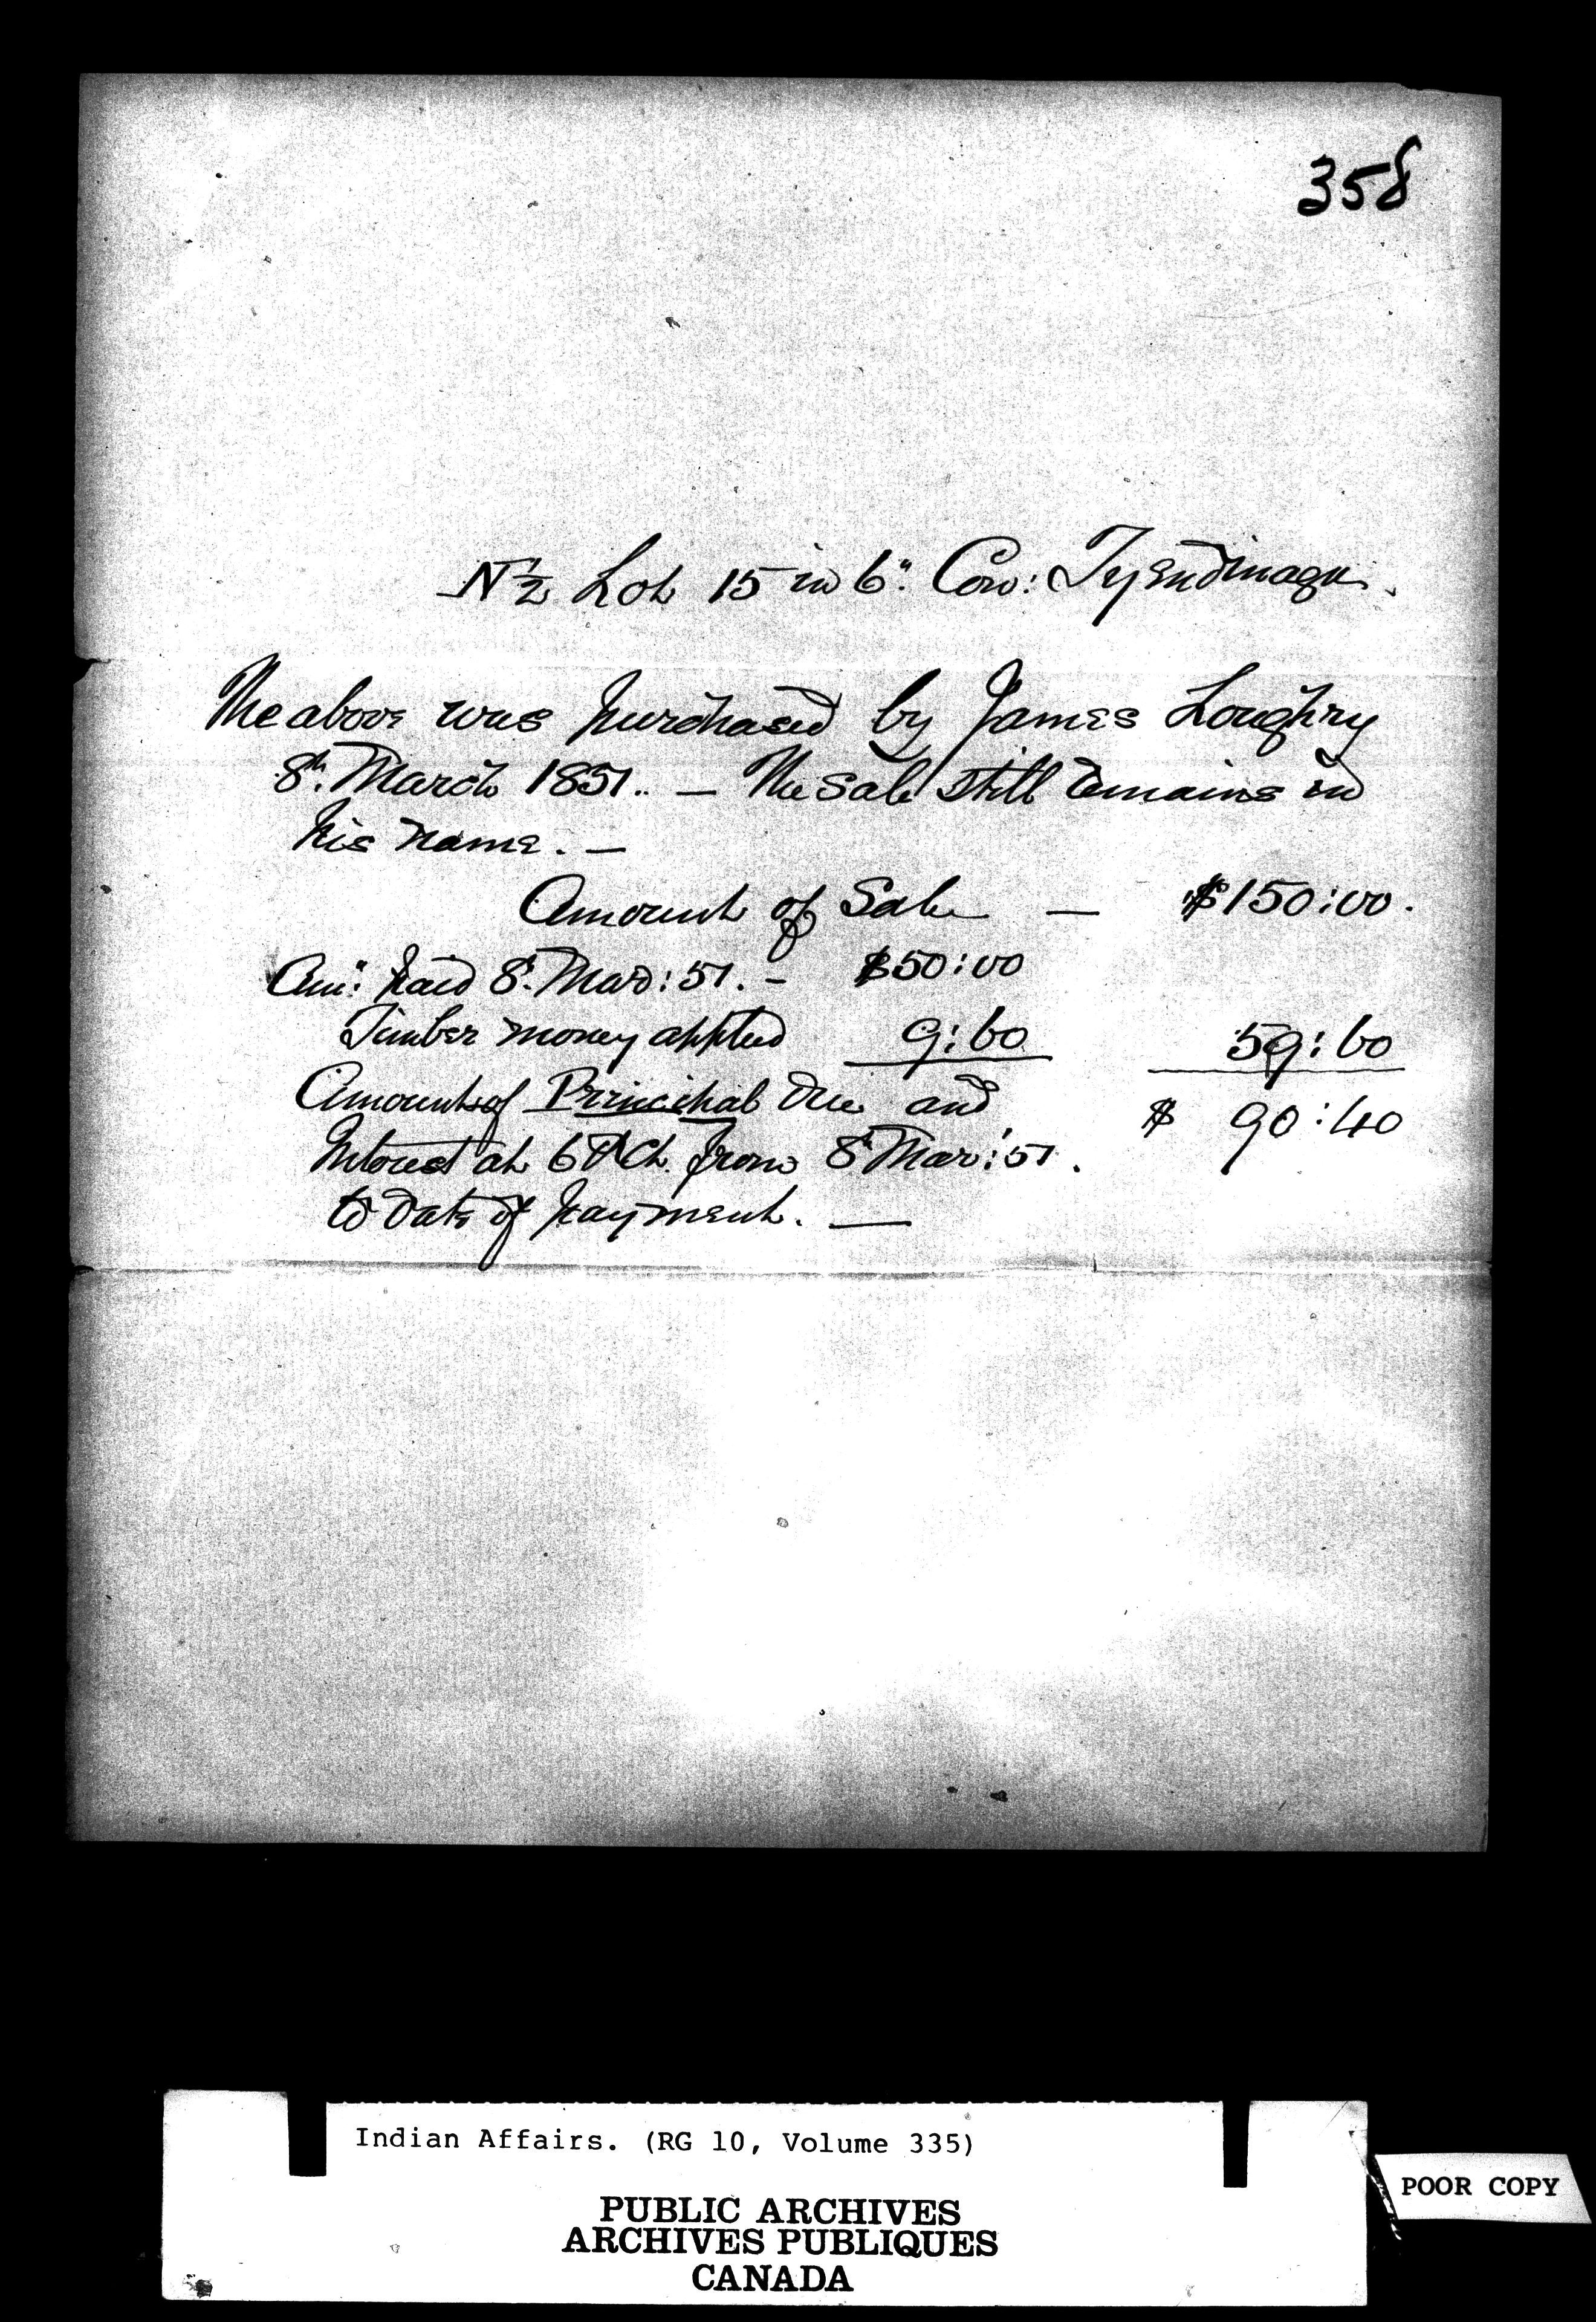 358
N ½ Lot 15 in 6" Con: Tyendinaga.
The above was purchased by James Loughry
8th March 1851. — The sale still remains in
his name. —
Amount of Sale — $150:00.
Am: paid 8 Mar: 51. - $50:00
Timber money applied 9:60 59:60
Amount of Principal due and $ 90:40
Interest at 6 P Ct. from 8 Mar: 51.
to date of payment. —
Indian Affairs. (RG 10, Volume 335)
PUBLIC ARCHIVES
ARCHIVES PUBLIQUES
CANADA
POOR COPY